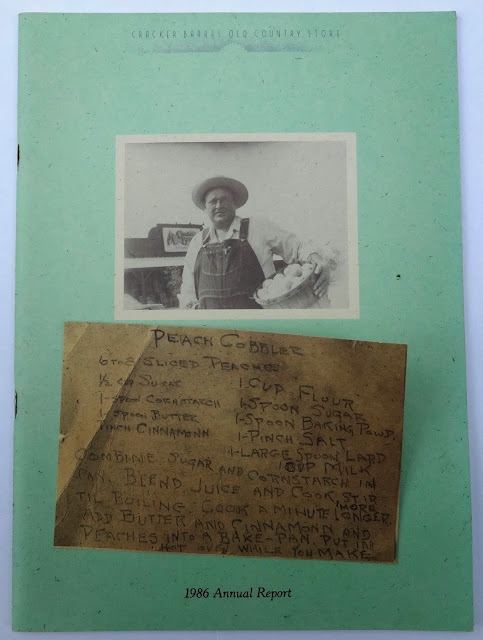 CRACKER BARREL OLD COUNTRY STORE
PEACH COBBLER
6 TO 8 SLICED PEACHES
½ CUP SUGAR
1-SPOON CORNSTARCH
1-SPOON BUTTER
PINCH CINNAMONN
1 CUP FLOUR
1-SPOON SUGAR
1-SPOON BAKING POWD.
1-PINCH SALT
1-LARGE SPOON LARD
1 CUP MILK
COMBINE SUGAR AND CORNSTARCH IN
PAN, BLEND JUICE AND COOK, STIR
TIL BOILING. COOK A MINUTE MORE LONGER.
ADD BUTTER AND CINNAMONN AND
PEACHES INTO A BAKE-PAN. PUT IN
HOT OVEN WHILE YOU MAKE
1986 Annual Report